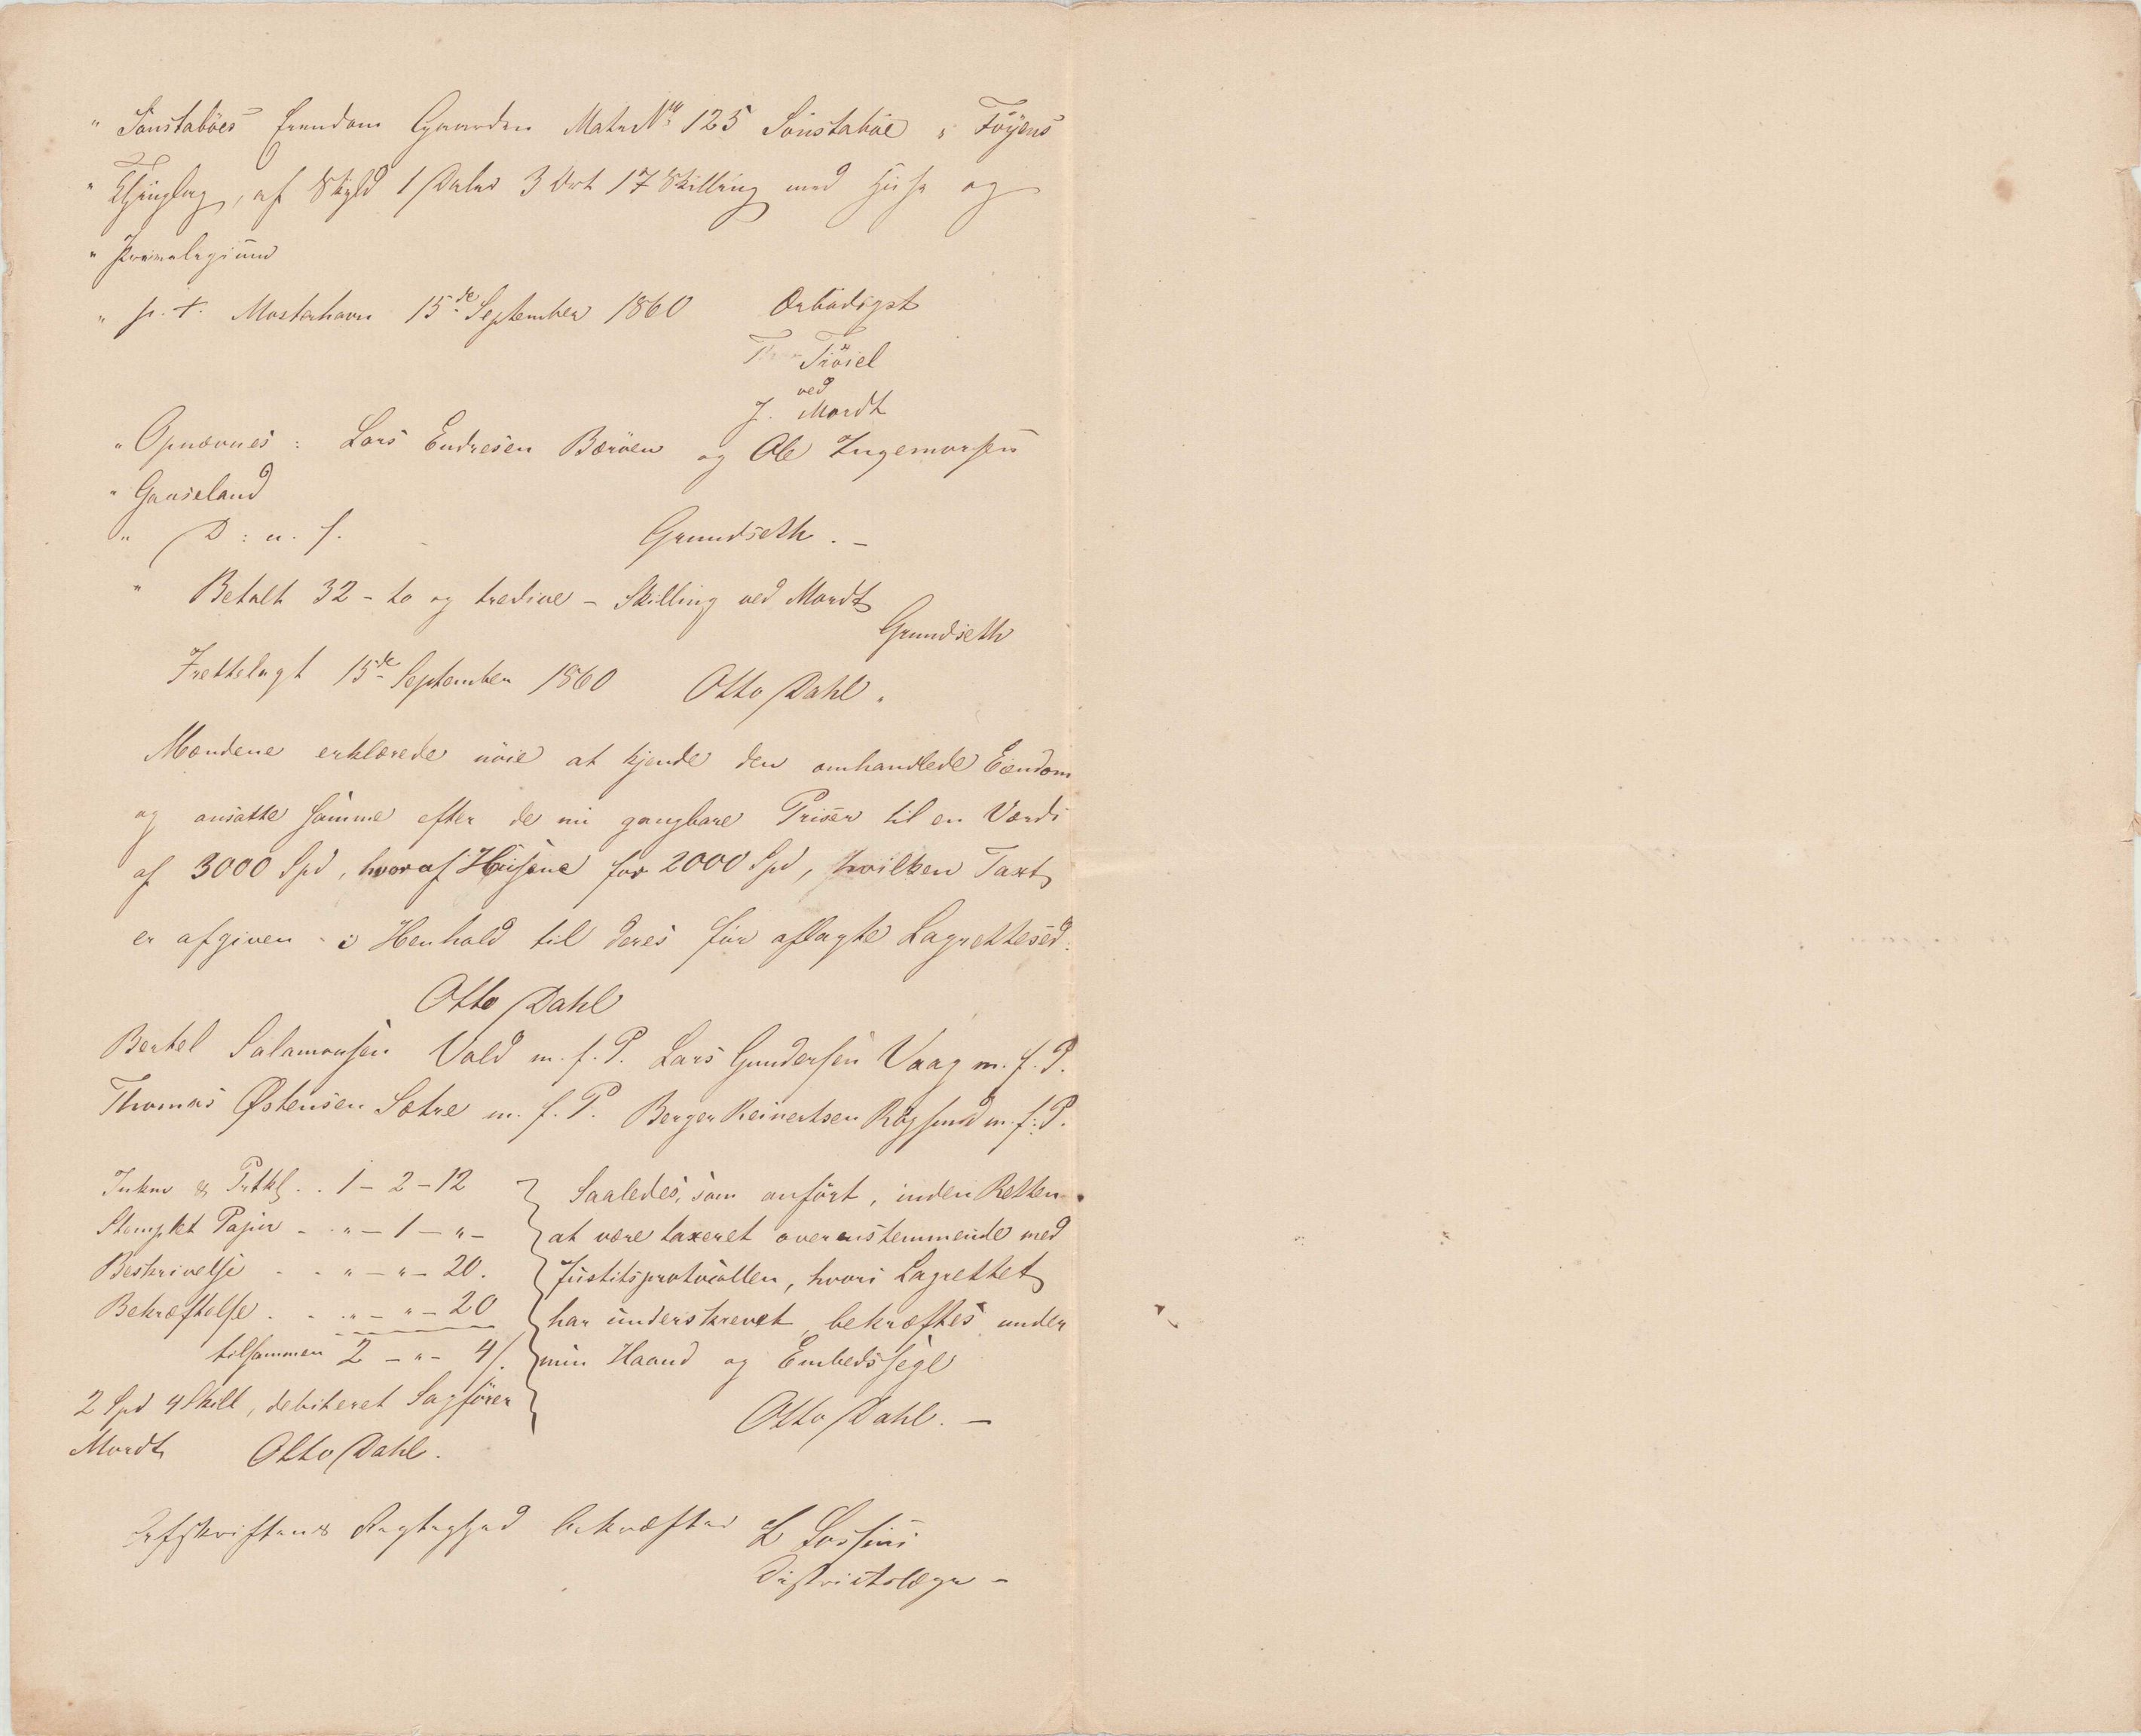 " Sønstabøes Eiendom Gaarden Matr Nr 125 Sønstabøe i Føyens
" Thinglag, af Skyld 1 Daler 3 Ort 17 Skilling med Huse og
" 
" p. t. Mosterhavn 15de September 1860 Ærbødigst
Trøiel
ved
J. Mordt
" Opnævnes: Lars Endresen Bærøen og Ole Ingemarsen
" Gaaseland
" D: u. s. Grundseth. –
" Betalt 32 – to og tredive – Skilling ved Mordt
Grundseth
Frettelagt 15de September 1860 Otto Dahl.
Mændene erklærede nøie at kjende den omhandlede Eiendom
og ansatte samme efter de nu gangbare Priser til en Værdi
af 3000 Spd, hvoraf Husene for 2000 Spd, hvilken Taxt
er afgiven i Henhold til deres før aflagte Lagrettesed.
Otto Dahl
Bertel Salamonsen Vold m. f. P. Lars Gundersen Vaag m. f. P.
Thomas Østensen Sætre m. f. P. Berger Reinertsen Røgsund m. f. P.
Inkm & Prtkl . . 1 – 2 – 12
Stemplet Papir – . " – 1 – " –
Beskrivelse . . " – " – 20.
Bekræftelse . . " – " – 20
tilsammen 2 – " – 4/.
2 Spd 4 Skill, debiteret Sagfører
Mordt Otto Dahl.
Saaledes, som anført, inden Retten
at være taxeret overensstemmende med
Justitsprotocollen, hvori Lagrettet
har underskrevet, bekræftes under
min Haand og Embedssegl
Otto Dahl. –
Afskriftens Rigtighed bekræfter L
Districtslæge –